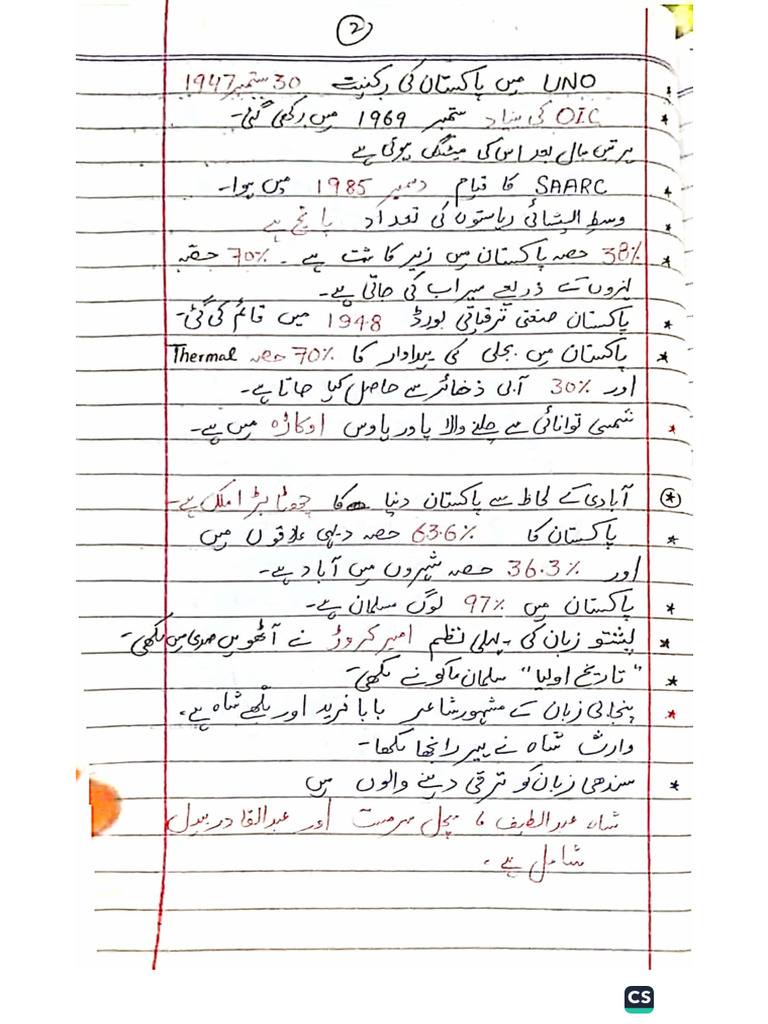 2
UNO میں پاکستان کی رکنیت 30 ستمبر 1947
* OIC کی بنیاد ستمبر 1969 میں رکھی گئی۔
ہر تین سال بعد اس کی میٹنگ ہوتی ہے
* SAARC کا قیام دسمبر 1985 میں ہوا۔
* وسط ایشیائی ریاستوں کی تعداد پانچ ہے
* 38% حصہ پاکستان میں زیر کاشت ہے ۔ 70% حصہ
نہروں کے ذریعے سیراب کی جاتی ہے۔
* پاکستان صنعتی ترقیاتی بورڈ 1948 میں قائم کی گئی۔
* پاکستان میں بجلی کی پیداوار کا 70% حصہ Thermal
اور 30% آبی ذخائر سے حاصل کیا جاتا ہے۔
* شمسی توانائی سے چلنے والا پاور ہاوس اوکاڑہ میں ہے۔
* آبادی کے لحاظ سے پاکستان دنیا کا چھٹا بڑا ملک ہے۔
* پاکستان کا 63.6% حصہ دیہی علاقوں میں
اور 36.3% حصہ شہروں میں آباد ہے۔
* پاکستان میں 97% لوگ مسلمان ہے۔
* پشتو زبان کی پہلی نظم امیر کروڑ نے آٹھویں صدی میں لکھی۔
* "تاریخ اولیا" سلمان ماکو نے لکھی۔
* پنجابی زبان کے مشہور شاعر بابا فرید اور بلھے شاہ ہے۔
وارث شاہ نے ہیر رانجھا لکھا۔
* سندھی زبان کو ترقی دینے والوں میں
شاہ عبدالطیف ، سچل سرمست اور عبدالقادر بیدل
شامل ہے ۔
CS